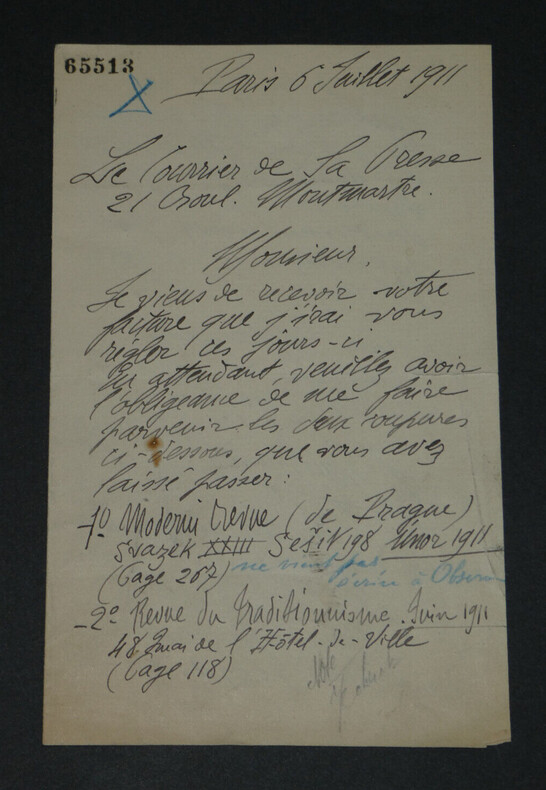 65513
Paris 6 Juillet 1911
Le Courrier de la Presse
21 Boul. Montmartre.
Monsieur,
Je viens de recevoir votre
facture que j'irai vous
régler ces jours-ci
En attendant, veuillez avoir
l'obligeance de me faire
parvenir les deux coupures
ci-dessous, que vous avez
laissé passer:
-1º Moderni Revue (de Prague)
svazek XXIII Sešit 198 Únor 1911
(Page 267) ne vient pas
écrire à
-2º Revue du Traditionnisme. Juin 1911
48 Quai de l'Hôtel-de-Ville
(Page 118)